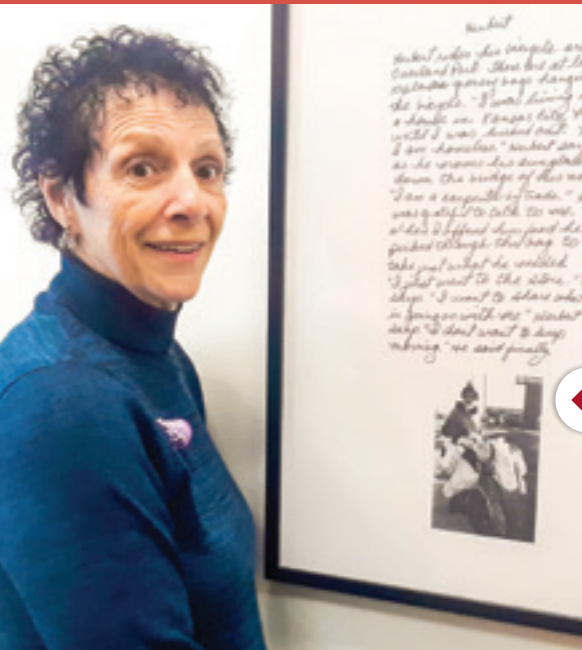 Herbert
Herbert rides his bicycle
Overland Park. There are at
grocery bags
the bicycle. "I was living
a house in Kansas City
until I was
I am homeless." Herbert
as he moves his
down the bridge of his
"I am a carpenter by trade."
was grateful to talk to me.
When I offered him food he
picked through the bag to
take just what he needed
"I just went to the store."
says "I want to share what
is going on with me" Herbert
says "I don't want to keep
moving" he said finally